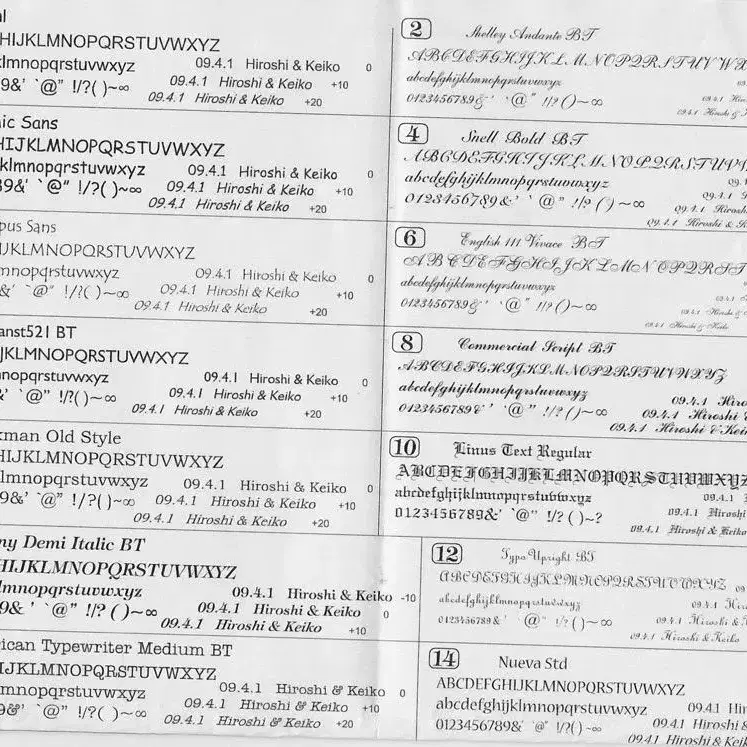 al
HIJKLMNOPQRSTUVWXYZ
klmnopqrstuvwxyz 09.4.1 Hiroshi & Keiko 0
9&' `@" !/?( )~∞ 09.4.1 Hiroshi & Keiko +10
09.4.1 Hiroshi & Keiko +20
mic Sans
HIJKLMNOPQRSTUVWXYZ
klmnopqrstuvwxyz 09.4.1 Hiroshi & Keiko 0
89&' `@" !/?( )~∞ 09.4.1 Hiroshi & Keiko +10
09.4.1 Hiroshi & Keiko +20
pus Sans
IJKLMNOPQRSTUVWXYZ
mnopqrstuvwxyz 09.4.1 Hiroshi & Keiko 0
&' `@" !/?( )~∞ 09.4.1 Hiroshi & Keiko +10
09.4.1 Hiroshi & Keiko +20
anst521 BT
JKLMNOPQRSTUVWXYZ
nopqrstuvwxyz 09.4.1 Hiroshi & Keiko 0
&' `@" !/?( )~∞ 09.4.1 Hiroshi & Keiko +10
09.4.1 Hiroshi & Keiko +20
kman Old Style
HIJKLMNOPQRSTUVWXYZ
lmnopqrstuvwxyz 09.4.1 Hiroshi & Keiko 0
9&' `@" !/?( )~∞ 09.4.1 Hiroshi & Keiko +10
09.4.1 Hiroshi & Keiko +20
ny Demi Italic BT
HIJKLMNOPQRSTUVWXYZ
lmnopqrstuvwxyz 09.4.1 Hiroshi & Keiko -10
9&' `@" !/?( )~∞ 09.4.1 Hiroshi & Keiko 0
09.4.1 Hiroshi & Keiko +10
rican Typewriter Medium BT
IJKLMNOPQRSTUVWXYZ
mnopqrstuvwxyz 09.4.1 Hiroshi & Keiko 0
9&' `@" !/?( )~∞ 09.4.1 Hiroshi & Keiko +10
09.4.1 Hiroshi & Keiko +20
2 Shelley Andante BT
ABCDEFGHIJKLMNOPQRSTUVWX
abcdefghijklmnopqrstuvwxyz
0123456789&' `@" !/?( )~∞ 09.4.1 Hir
09.4.1 Hiroshi & K
4 Snell Bold BT
ABCDEFGHIJKLMNOPQRSTUVW
abcdefghijklmnopqrstuvwxyz 09.4.1
0123456789&' `@" !/?( )~∞ 09.4.1 Hiroshi
09.4.1 Hiroshi & K
6 English 111 Vivace BT
ABCDEFGHIJKLMNOPQRST
abcdefghijklmnopqrstuvwxyz 09.4.1
0123456789&' `@" !/?( )~∞ 09.4.1 Hiroshi &
09.4.1 Hiroshi & Keiko
8 Commercial Script BT
ABCDEFGHIJKLMNOPQRSTUVWXYZ
abcdefghijklmnopqrstuvwxyz 09.4.1 Hiro
0123456789&' `@" !/?( )~∞ 09.4.1 Hiroshi &
09.4.1 Hiroshi & Kei
10 Linus Text Regular
ABCDEFGHIJKLMNOPQRSTUVWXYZ
abcdefghijklmnopqrstuvwxyz 09.4.1 H
0123456789&' `@" !/?( )~? 09.4.1 Hiroshi
09.4.1 Hiroshi & Keiko
12 Typo Upright BT
ABCDEFGHIJKLMNOPQRSTUVWXYZ 09
abcdefghijklmnopqrstuvwxyz 09.4.1 Hi
0123456789&' `@" !/?( )~∞ 09.4.1 Hiroshi & K
09.4.1 Hiroshi & Keiko
14 Nueva Std
ABCDEFGHIJKLMNOPQRSTUVWXYZ
abcdefghijklmnopqrstuvwxyz 09.4.1 Hiro
0123456789&' `@" !/?( )~∞ 09.4.1 Hiroshi &
09.4.1 Hiroshi & Keiko